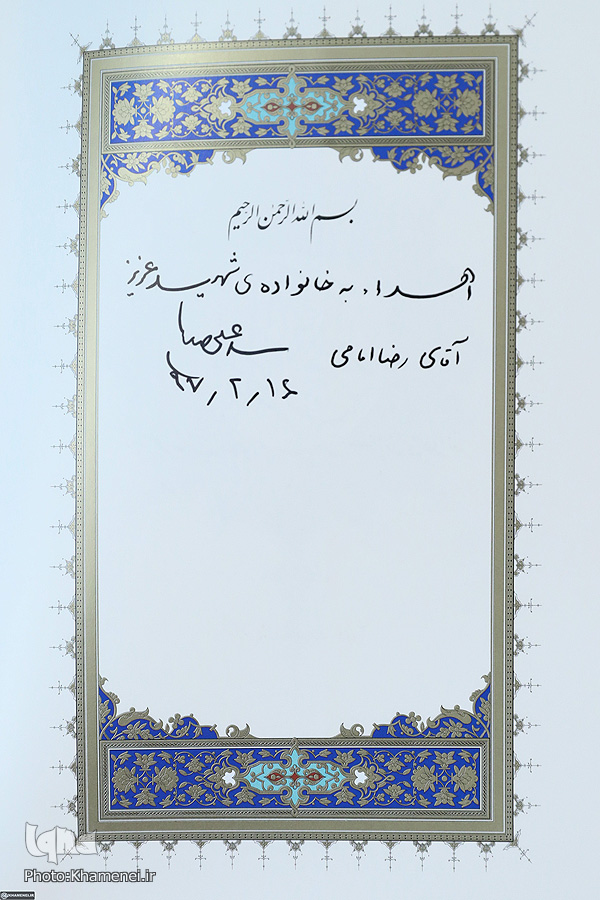 بسم الله الرحمن الرحیم
اهداء به خانواده‌ی شهید عزیز
آقای رضا امامی
۹۷/۲/۱۶
iqna
Photo:Khamenei.ir
KHAMENEI.IR